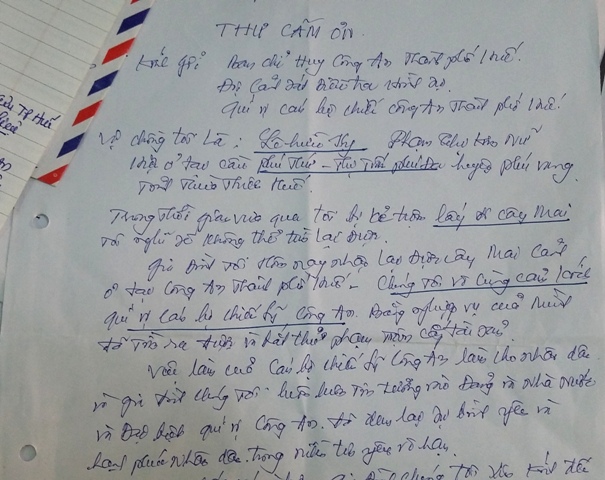 THƯ CẢM ƠN
Kính gửi Ban chỉ Huy Công An Thành phố Huế.
Đội Cảnh sát điều tra Hình sự.
Quí vị cán bộ chiến công An Thành phố Huế.
Vợ chồng tôi là: Lê Hiếu Phạm Thư
Hiện ở tại căn phú Thứ - Thị Trấn phú Đa huyện phú vang
Tỉnh Thừa Thiên Huế.
Trong thời gian vừa qua tôi bị kẻ trộm lấy đi cây Mai
Tôi nghĩ sẽ không thể tìm lại được.
gia đình tôi Hôm nay nhận lại được cây Mai cảnh
ở tại công An Thành phố Huế - chúng tôi vô cùng cảm kích
quí vị cán bộ chiến sỹ công An. Bằng nghiệp vụ của mình
đã tìm ra được và bắt thủ phạm trộm cắp tài sản
Việc làm của cán bộ chiến sỹ công An làm cho nhân dân
và gia đình chúng tôi luôn luôn tin tưởng vào Đảng và Nhà Nước
và Đặc biệt quí vị Công An. đã đem lại sự bình yên và
hạnh phúc nhân dân. trong niềm tin yêu vô hạn.
chúng tôi xin kính